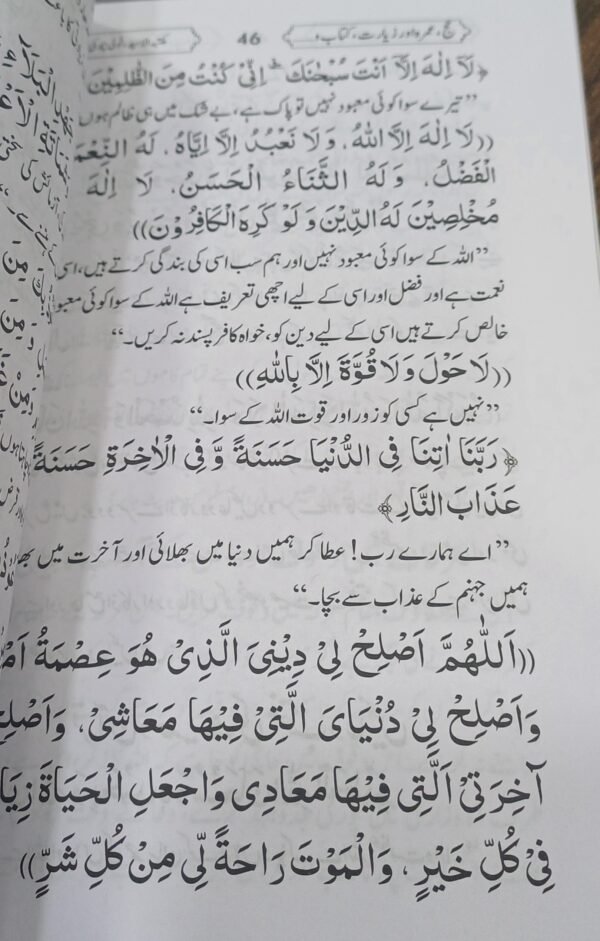 حج، عمرہ اور زیارت، کتاب و
46
﴿لَآ اِلٰهَ اِلَّآ اَنْتَ سُبْحٰنَكَ ۖ اِنِّیْ كُنْتُ مِنَ الظّٰلِمِیْنَ
”تیرے سوا کوئی معبود نہیں تو پاک ہے، بے شک میں ہی ظالم ہوں
((لَا اِلٰهَ اِلَّا اللّٰهُ، وَلَا نَعْبُدُ اِلَّا اِیَّاهُ، لَهُ النِّعْمَ
الْفَضْلُ، وَلَهُ الثَّنَاءُ الْحَسَنُ، لَا اِلٰهَ
مُخْلِصِیْنَ لَهُ الدِّیْنَ وَلَوْ كَرِهَ الْكَافِرُوْنَ))
”اللہ کے سوا کوئی معبود نہیں اور ہم سب اسی کی بندگی کرتے ہیں، اسی
نعمت ہے اور فضل اور اسی کے لیے اچھی تعریف ہے اللہ کے سوا کوئی معبو
خالص کرتے ہیں اسی کے لیے دین کو، خواہ کافر پسند نہ کریں۔“
((لَا حَوْلَ وَلَا قُوَّةَ اِلَّا بِاللّٰهِ))
”نہیں ہے کسی کو زور اور قوت اللہ کے سوا۔“
﴿رَبَّنَا اٰتِنَا فِی الدُّنْیَا حَسَنَةً وَّفِی الْاٰخِرَةِ حَسَنَةً
عَذَابَ النَّارِ﴾
”اے ہمارے رب! عطا کر ہمیں دنیا میں بھلائی اور آخرت میں بھ
ہمیں جہنم کے عذاب سے بچا۔“
((اَللّٰهُمَّ اَصْلِحْ لِیْ دِیْنِیَ الَّذِیْ هُوَ عِصْمَةُ اَمْ
وَاَصْلِحْ لِیْ دُنْیَایَ الَّتِیْ فِیْهَا مَعَاشِیْ، وَاَصْلِحْ
آخِرَتِیْ اَلَّتِی فِیْهَا مَعَادِی وَاجْعَلِ الْحَیَاةَ زِیَا
فِیْ كُلِّ خَیْرٍ، وَالْمَوْتَ رَاحَةً لِّی مِنْ كُلِّ شَرٍّ))